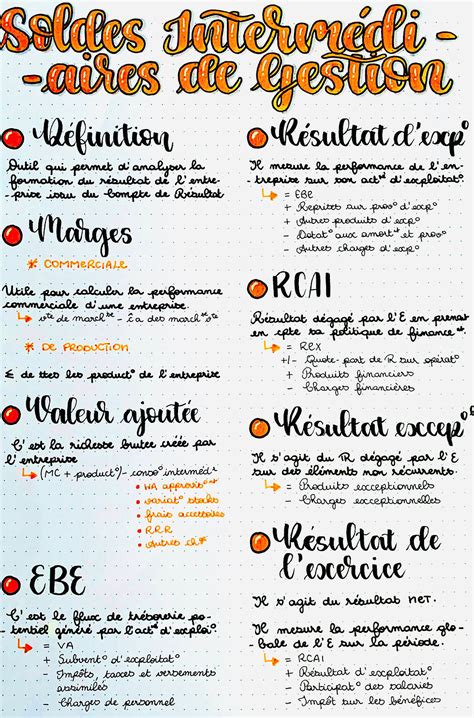 Soldes Intermédi-
-aires de Gestion
Définition
Outil qui permet d'analyser la
formation du résultat de l'entre-
-prise issu du Compte de Résultat
Marges
* COMMERCIALE
Utile pour calculer la performance
commerciale d'une entreprise.
↳ vte de march se - ĉa des march se vte
* DE PRODUCTION
Σ de ttes les product° de l'entreprise
Valeur ajoutée
C'est la richesse brute créée par
l'entreprise
↳ (MC + product°) - conso° interméd
• WA approvist
• variat° stocks
• frais accessoires
• RRR
• Autres ch*
EBE
C'est le flux de trésorerie po-
-tentiel généré par l'act° d'exploi°.
↳ = VA
+ Subvent° d'exploitat°
- Impôts, taxes et versements
assimilés
- Charges de personnel
Résultat d'exp°
Il mesure la performance de l'en-
-treprise sur son actté d'exploitat°.
↳ = EBE
+ Reprises sur prov° d'exp°
+ Autres produits d'exp°
- Dotat° aux amort et prov°
- Autres charges d'exp°
RCAI
Résultat dégagé par l'E en prenant
en cpte sa politique de financet.
↳ = REX
+/- Quote-part de R sur opérat°
+ Produits financiers
- Charges financières
Résultat excep°
Il s'agit du R dégagé par l'E
sur des éléments non récurrents.
↳ = Produits exceptionnels
- Charges exceptionnelles
Résultat de
l'exercice
Il s'agit du résultat NET.
Il mesure la performance glo-
-bale de l'E sur la période.
↳ = RCAI
+ Résultat d'exploitat°
- Participat° des salariés
- Impôt sur les bénéfices